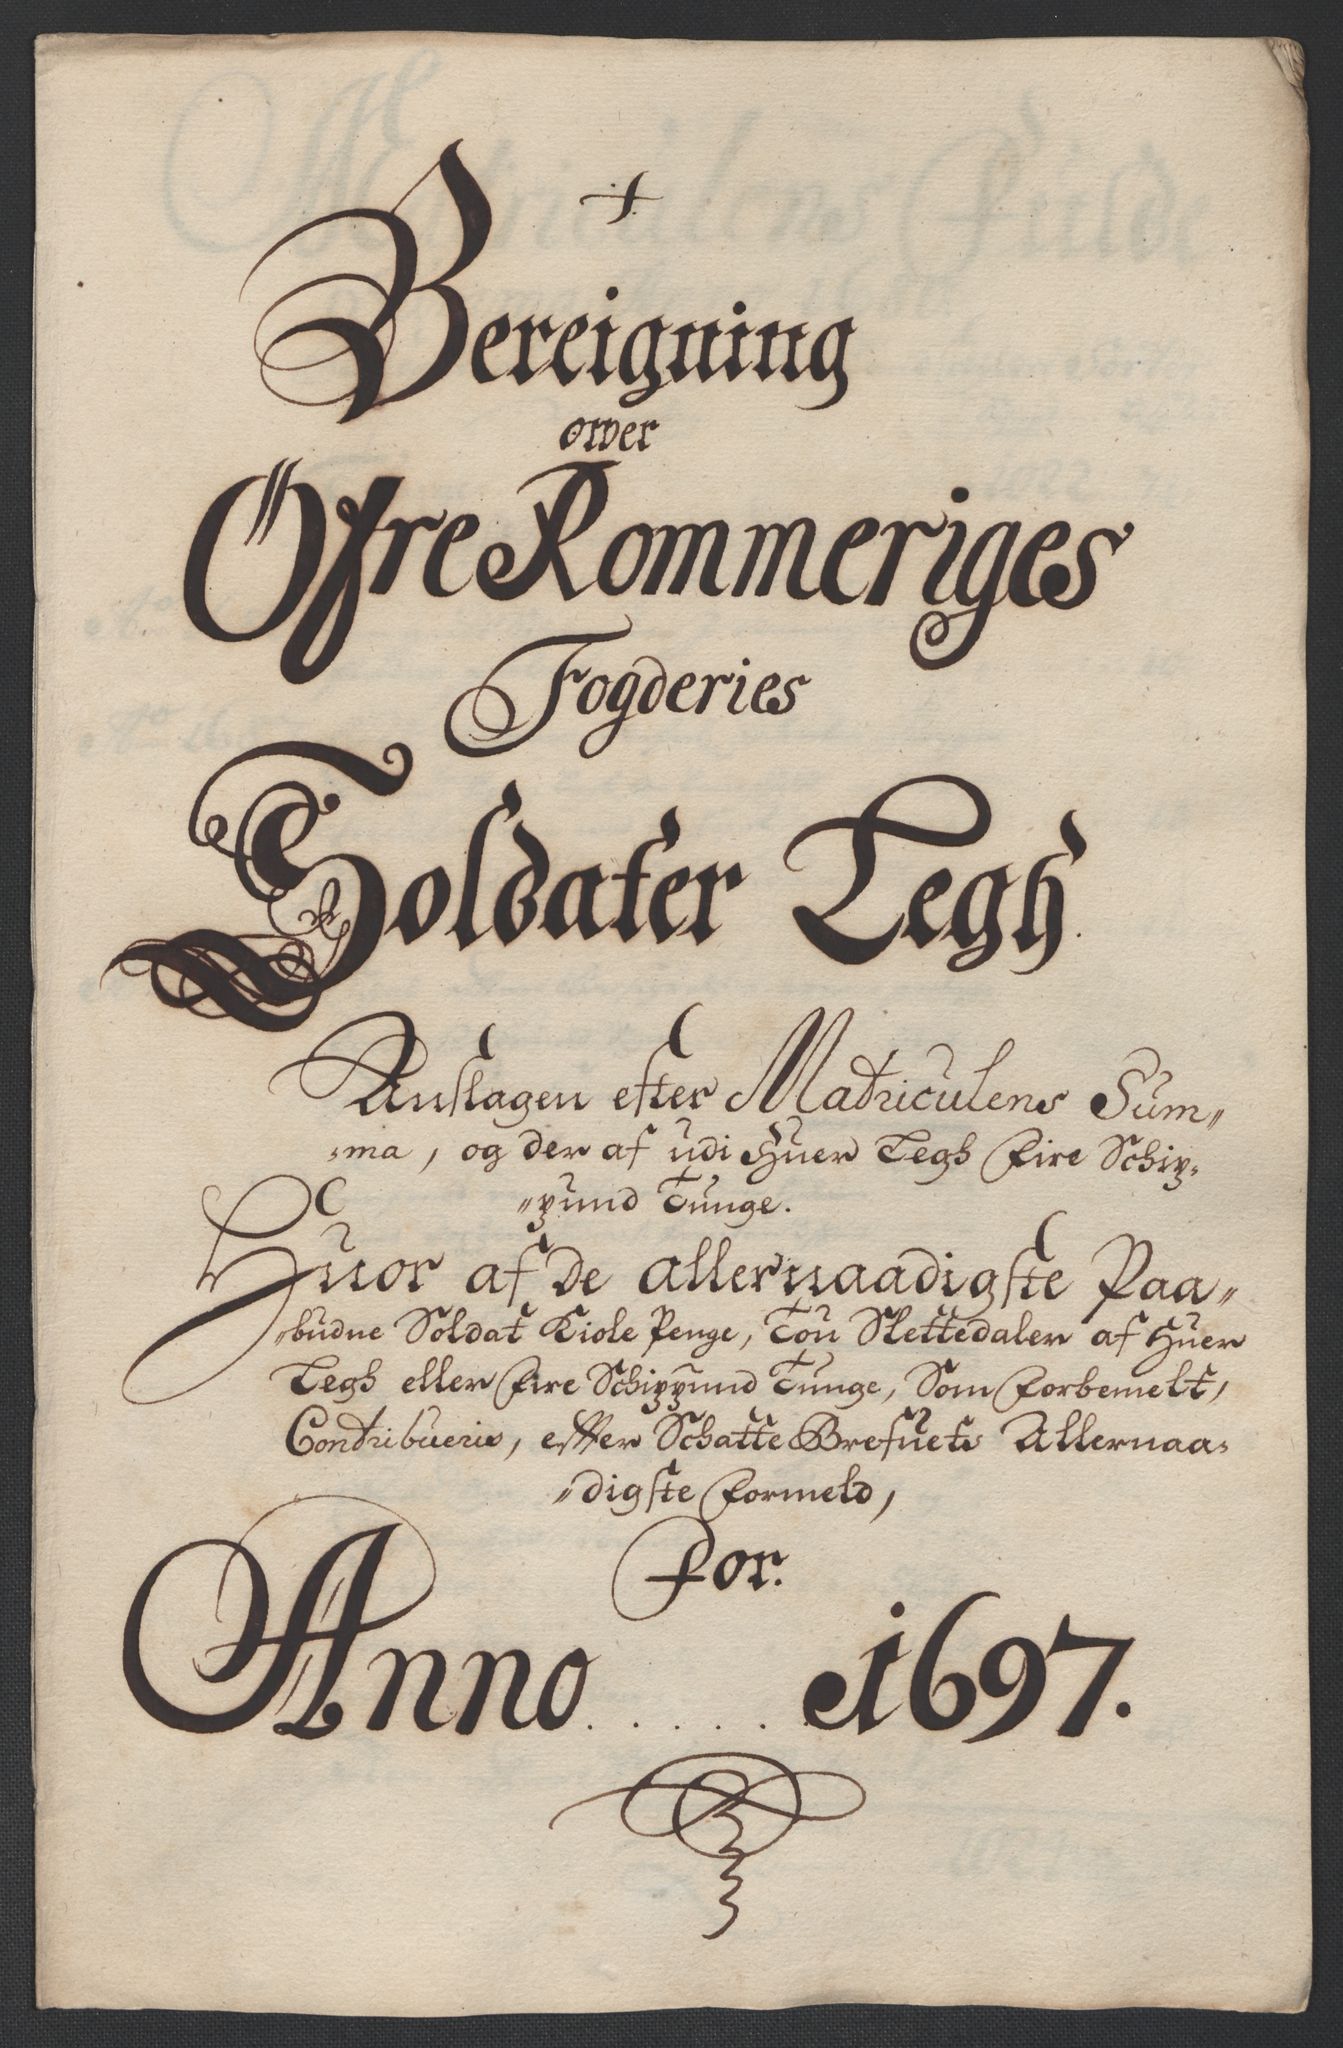 Bereigning
ower
Öfre Rommeriges
Fogderies
Soldater Legh.
Anslagen efter Matriculens Sum„
„ma, og der af udi Huer Legh Fire Schip„
„pund Tunge.
Huor af de allernaadigste Paa„
„budne Soldat Kiole Penge, Tou Slettedaler af Huer
Legh eller Fire Schippund Tunge, Som Forbemelt,
Contribueris, efter Schatte Brefuets Allernaa„
„digste Formeld,
For.
Anno . . . . . . 1697.